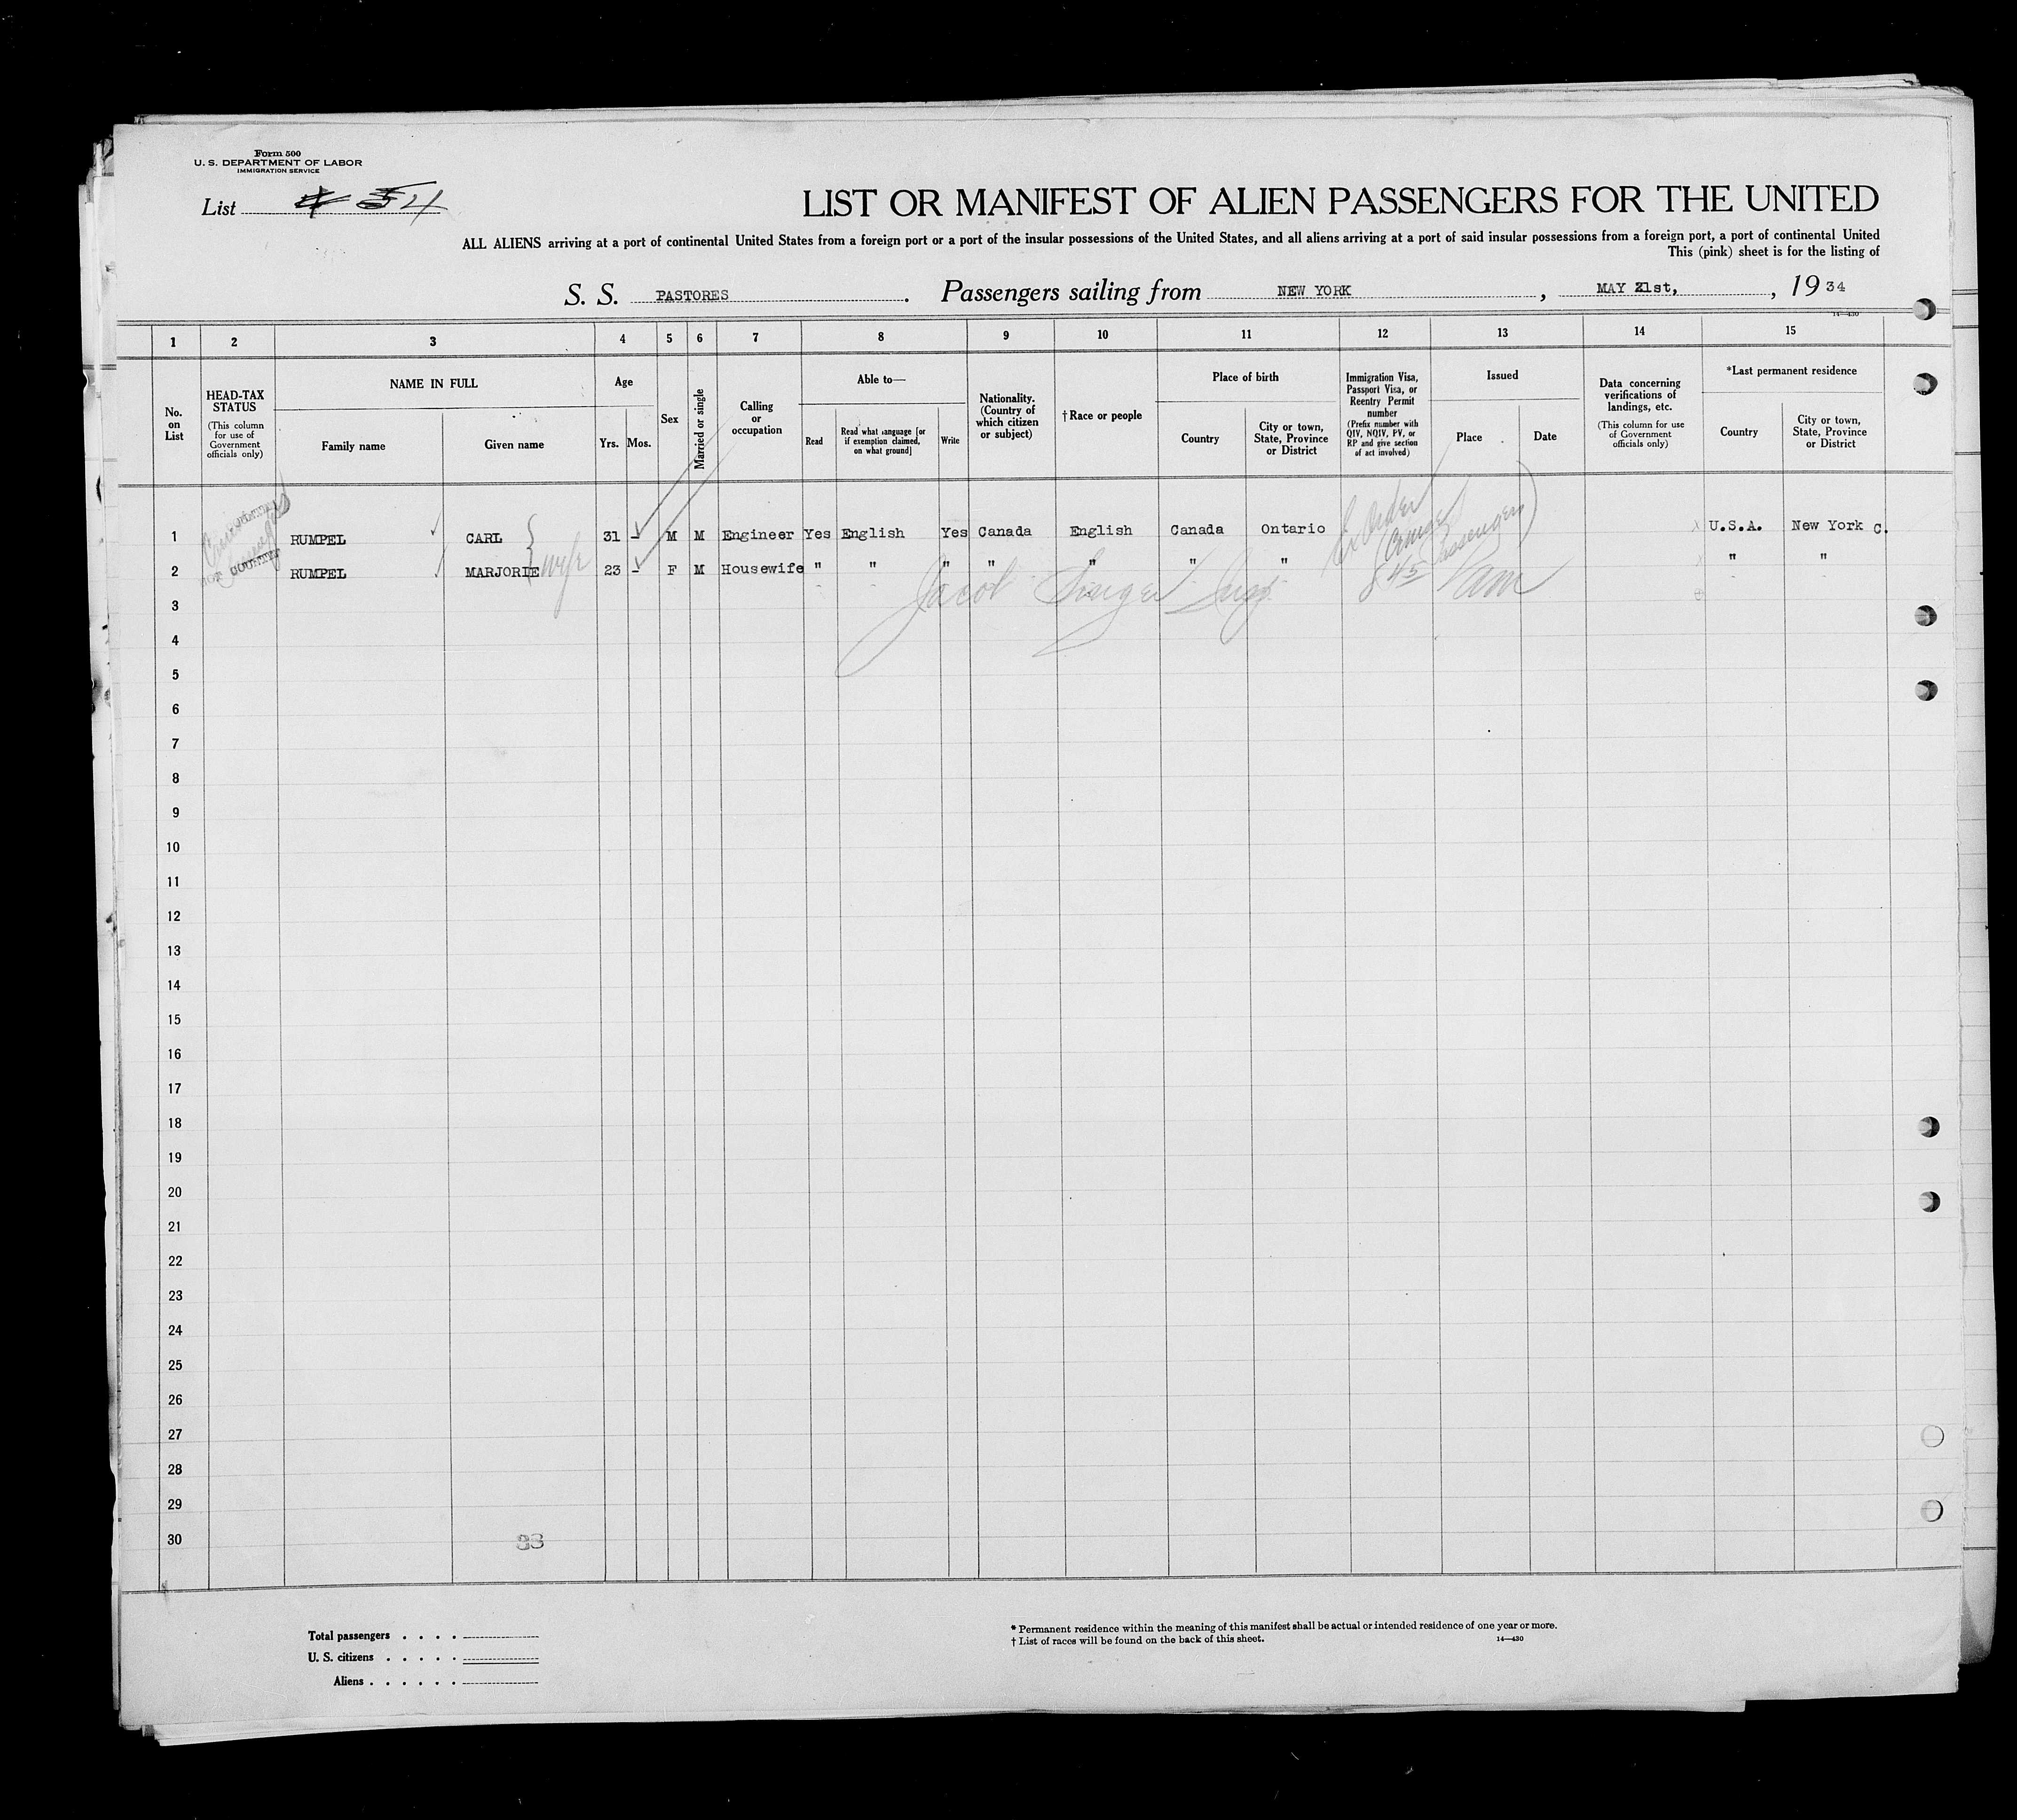 Form 500
U. S. DEPARTMENT OF LABOR
IMMIGRATION SERVICE
List 54
LIST OR MANIFEST OF ALIEN PASSENGERS FOR THE UNITED
ALL ALIENS arriving at a port of continental United States from a foreign port or a port of the insular possessions of the United States, and all aliens arriving at a port of said insular possessions from a foreign port, a port of continental United
This (pink) sheet is for the listing of
S. S. PASTORES. Passengers sailing from NEW YORK, MAY 21st, , 19 34
14—430
1 2 3 4 5 6 7 8 9 10 11 12 13 14 15
No. on List
HEAD-TAX STATUS (This column for use of Government officials only)
NAME IN FULL
Family name
Given name
Age
Yrs. Mos.
Sex
Married or single
Calling or occupation
Able to—
Read
Read what language [or if exemption claimed, on what ground]
Write
Nationality. (Country of which citizen or subject)
†Race or people
Place of birth
Country
City or town, State, Province or District
Immigration Visa, Passport Visa, or Reentry Permit number (Prefix number with QIV, NQIV, PV, or RP and give section of act involved)
Issued
Place
Date
Data concerning verifications of landings, etc. (This column for use of Government officials only)
*Last permanent residence
Country
City or town, State, Province or District
1 RUMPEL CARL 31 - M M Engineer Yes English Yes Canada English Canada Ontario U.S.A. New York C.
wife
2 RUMPEL MARJORIE 23 - F M Housewife " " " " " " " " "
Ex Order
(Cruise Passengers)
Jacob Singer Insp 845 am
3
4
5
6
7
8
9
10
11
12
13
14
15
16
17
18
19
20
21
22
23
24
25
26
27
28
29
30
Total passengers . . . .
U. S. citizens . . . . .
Aliens . . . . . .
* Permanent residence within the meaning of this manifest shall be actual or intended residence of one year or more.
† List of races will be found on the back of this sheet.
14—430